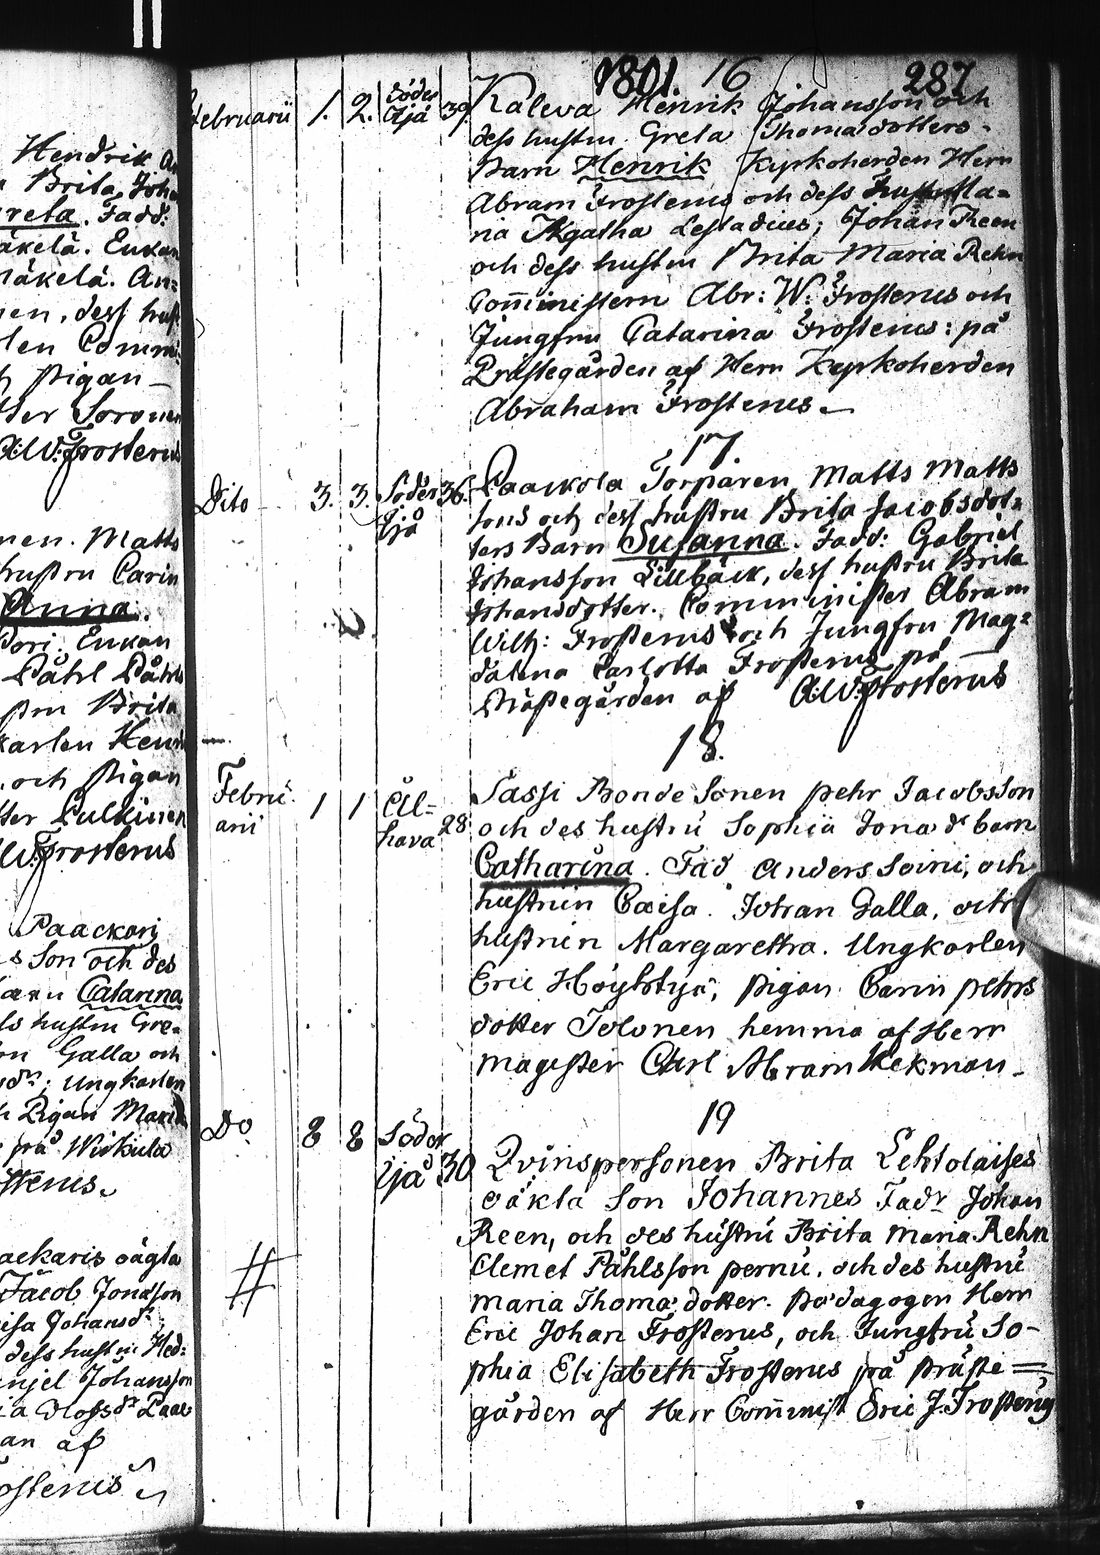 Hendrik
Brita Joha
Greta. Fadd:
äkelä. Enkan
mäkelä. An=
nen, dess hust
len Commi
h Pigan
tter Soronen
A:W:Frosterus
nen. Matts
hustru Carin
Anna.
Enkan
Påhl Påhls
stru Brita
karlen Henri
, och Pigan
tter Pulkinen
W:Frosterus
Paackari
s Son och des
barn Catarina
hustru Gre=
Galla och
dr; Ungkarlen
h Pigan Maria
på Wirkula
sterus.
aackaris oägta
Jacob Jonsson
isa Johansdr;
dess hustru Hed:
anjel Johansson
ia Olofsdr Paac
an af
rosterus
1801. 16 287
Februarii 1. 2. Söder Ijå 39. Kaleva Henrik Johansson och
dess hustru Greta Thomædotters
Barn Henrik Kyrkoherden Herr
Abram Frosterus och dess Hustru
na Agatha Lestadius; Johan Reen
och dess hustru Brita Maria Rehn
Comministern Abr: W: Frosterus och
Jungfru Catarina Frosterus: på
Prästegården af Herr Kyrkoherden
Abraham Frosterus.
17.
Dito 3. 3. Söder Ijå 36. Paackola Torparen Matts Matts
sons och dess hustru Brita Jacobsdot=
ters Barn Susanna. Fadd: Gabriel
Johansson Lillbäck, dess hustru Brita
Johansdotter. Comminister Abram
Wilh: Frosterus och Jungfru Mag=
dalena Carlotta Frosterus på
Prästegården af A:W:Frosterus
18.
Februarii 1 1 Ol=hava 28 Sassi Bonde Sonen pehr Jacobsson
och des hustru Sophia Jonædr barn
Catharina. Fad Anders Soini, och
hustrun Caisa. Johan Galla, och
hustrun Margaretha. Ungkarlen
Eric Höyhtyä, Pigan Carin pehrs
dotter Tolonen hemma af Herr
Magister Carl Abram Kekman
19
Do. 8 8 Söder Ijå 30 Qvinspersonen Brita Lehtolaises
oäkta Son Johannes Fadr Johan
Reen, och des hustru Brita Maria Rehn
Clemet Påhlsson pernu, och des hustru
Maria Thomædotter. Pædagogen Herr
Eric Johan Frosterus, och Jungfru So-
phia Elisabeth Frosterus på Präste=
gården af Herr Commist Eric J. Frosterus
#